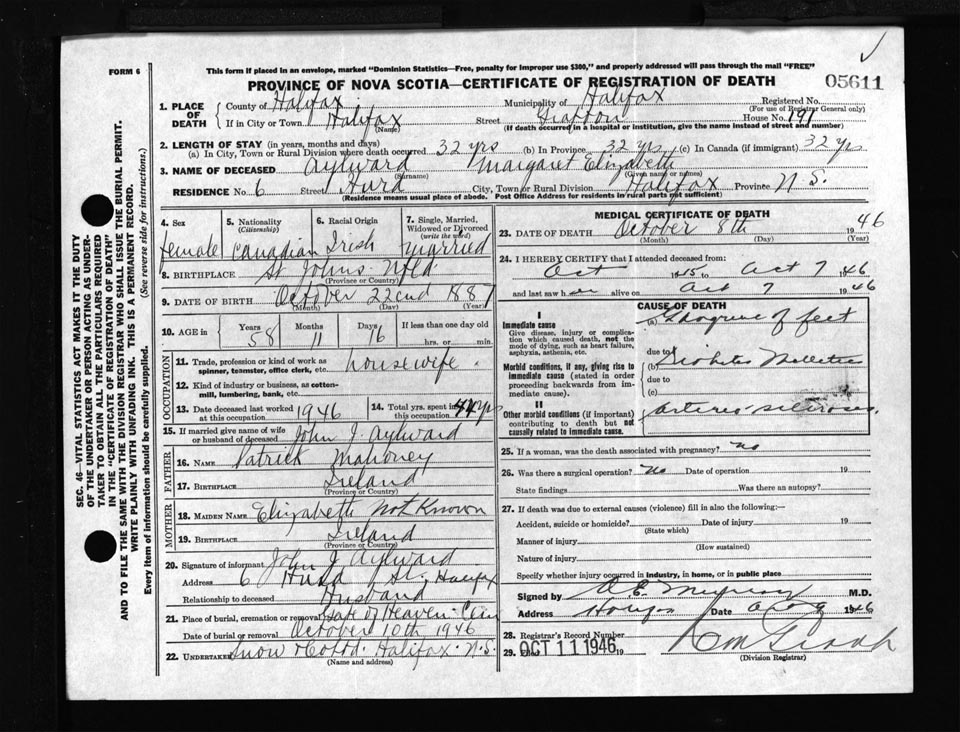 FORM 6
This form if placed in an envelope, marked "Dominion Statistics—Free, penalty for improper use $300," and properly addressed will pass through the mail "FREE"
PROVINCE OF NOVA SCOTIA—CERTIFICATE OF REGISTRATION OF DEATH
05611
1. PLACE OF DEATH
County of Halifax Municipality of Halifax Registered No.
(For use of Registrar General only)
If in City or Town Halifax Street Grafton House No. 191
(Name) (If death occurred in a hospital or institution, give the name instead of street and number)
2. LENGTH OF STAY (in years, months and days)
(a) In City, Town or Rural Division where death occurred 32 yrs (b) In Province 32 yrs (c) In Canada (if immigrant) 32 yrs
3. NAME OF DECEASED Aylward Margaret Elizabeth
(Surname) (Given name or names)
RESIDENCE No. 6 Street Hurd City, Town or Rural Division Halifax Province N.S.
(Residence means usual place of abode. Post Office Address for residents in rural parts not sufficient)
4. Sex female
5. Nationality (Citizenship) Canadian
6. Racial Origin Irish
7. Single, Married, Widowed or Divorced (write the word) Married
8. BIRTHPLACE St Johns Nfld
(Province or Country)
9. DATE OF BIRTH October 22cnd 1887
(Month) (Day) (Year)
10. AGE in Years 58 Months 11 Days 16 If less than one day old hrs. or min.
OCCUPATION
11. Trade, profession or kind of work as spinner, teamster, office clerk, etc. housewife
12. Kind of industry or business, as cotton-mill, lumbering, bank, etc.
13. Date deceased last worked at this occupation 1946
14. Total yrs. spent in this occupation 44 yrs
15. If married give name of wife or husband of deceased John J. Aylward
FATHER
16. NAME Patrick Mahoney
17. BIRTHPLACE Ireland
(Province or Country)
MOTHER
18. MAIDEN NAME Elizabeth Not Known
19. BIRTHPLACE Ireland
(Province or Country)
20. Signature of informant John J Aylward
Address 6 Hurd St, Halifax
Relationship to deceased Husband
21. Place of burial, cremation or removal Gate of Heaven Cem
Date of burial or removal October 10th 1946
22. UNDERTAKER Snow & Co Ltd. Halifax. N.S.
(Name and address)
MEDICAL CERTIFICATE OF DEATH
23. DATE OF DEATH October 8th 1946
(Month) (Day) (Year)
24. I HEREBY CERTIFY that I attended deceased from:
Oct 1945 to Oct 7 1946
and last saw her alive on Oct 7 1946
CAUSE OF DEATH
I
Immediate cause
Give disease, injury or complication which caused death, not the mode of dying, such as heart failure, asphyxia, asthenia, etc.
(a) Gangrene of feet
due to
Morbid conditions, if any, giving rise to immediate cause (stated in order proceeding backwards from immediate cause).
(b) Diabetes Mellitus
due to
(c)
II
Other morbid conditions (if important) contributing to death but not causally related to immediate cause.
Arterio-sclerosis.
25. If a woman, was the death associated with pregnancy? no
26. Was there a surgical operation? No Date of operation 19
State findings Was there an autopsy?
27. If death was due to external causes (violence) fill in also the following:—
Accident, suicide or homicide? Date of injury 19
(State which)
Manner of injury
(How sustained)
Nature of injury
Specify whether injury occurred in industry, in home, or in public place
Signed by M.D.
Address Date 1946
28. Registrar's Record Number
29. Filed OCT 11 1946 19
(Division Registrar)
SEC. 46—VITAL STATISTICS ACT MAKES IT THE DUTY
OF THE UNDERTAKER OR PERSON ACTING AS UNDER-
TAKER TO OBTAIN ALL THE PARTICULARS REQUIRED
IN THE "CERTIFICATE OF REGISTRATION OF DEATH"
AND TO FILE THE SAME WITH THE DIVISION REGISTRAR WHO SHALL ISSUE THE BURIAL PERMIT.
WRITE PLAINLY WITH UNFADING INK. THIS IS A PERMANENT RECORD.
Every item of information should be carefully supplied. (See reverse side for instructions.)